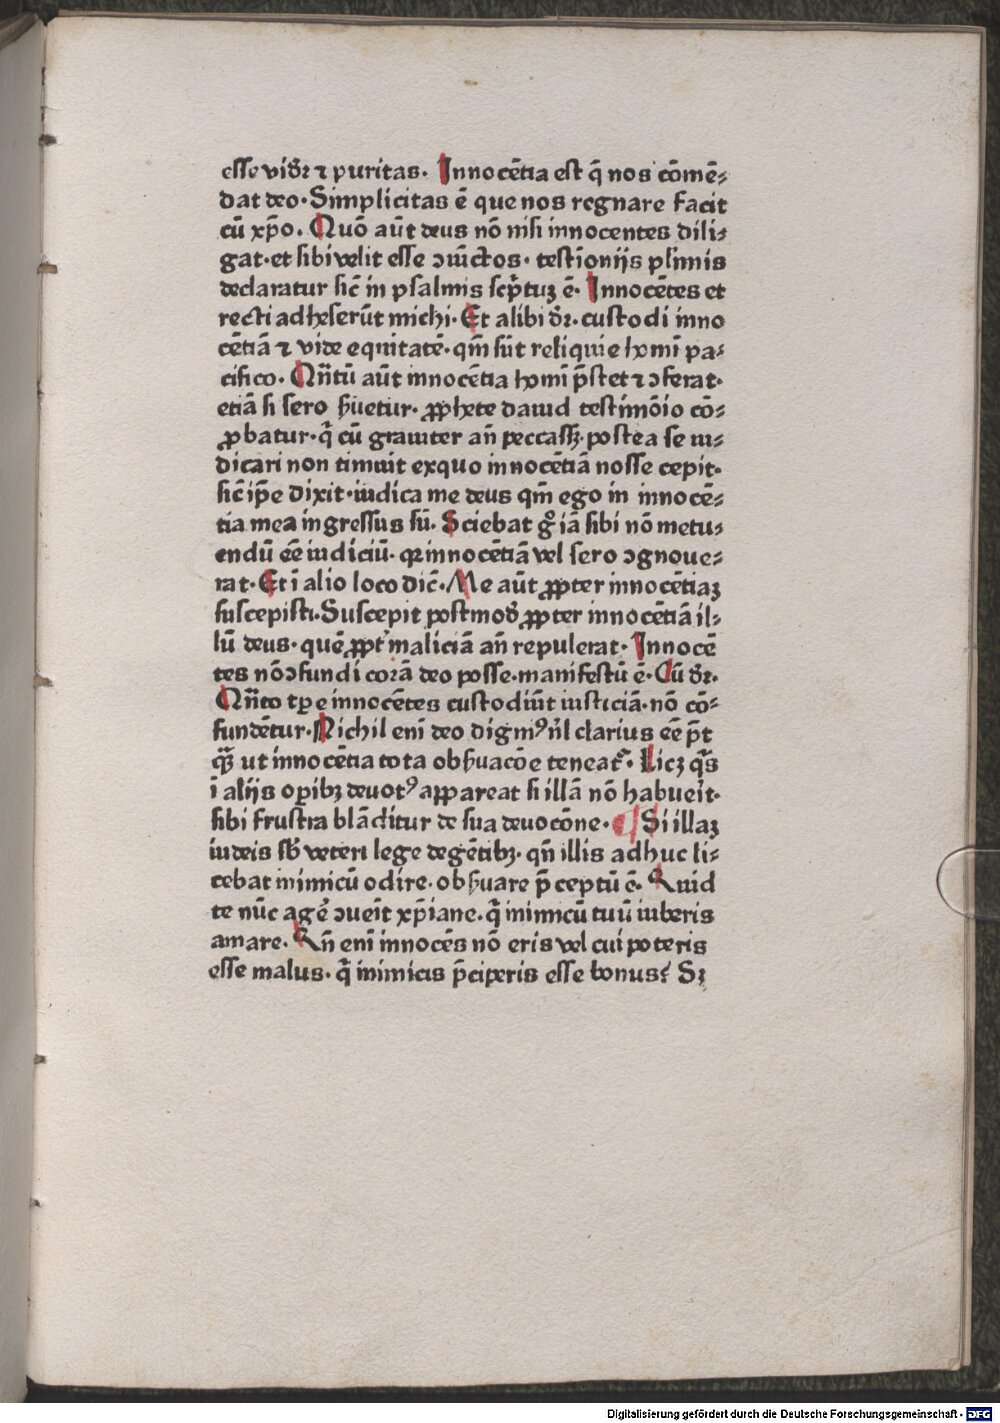 esse vidr̄ ⁊ puritas. Innocētia est q̄ nos cōmē⸗
dat deo. Simplicitas ē que nos regnare facit
cū xp̄o. Quō aūt deus nō nisi innocentes dili⸗
gat. et sibi velit esse ↄiūctos. testīonijs pl'imis
declaratur sic̄ in psalmis scp̄tuꝫ ē. Innocētes et
recti adheserūt michi. Et alibi dr̄. custodi inno
cētiā ⁊ vide equitatē. qm̄ sūt reliquie homī pa⸗
cifico. Qn̄tū aūt innocētia homī p̄stet ⁊ ↄferat.
etiā si sero ẜuetur. ꝓphete dauid testimōio cō⸗
ꝓbatur. q̄ cū grauiter an̄ peccassꝫ. postea se iu⸗
dicari non timuit exquo innocētiā nosse cepit.
sic̄ ip̄e dixit. iudica me deus qm̄ ego in innocē⸗
tia mea ingressus sū. Sciebat gͦ iā sibi nō metu⸗
endū eē iudiciū. qꝛ innocētiā vel sero ↄgnoue⸗
rat. Et ī alio loco dic̄. Me aūt ꝓpter innocētiaꝫ
suscepisti. Suscepit postmod̄ ꝓpter innocētiā il⸗
lū deus. quē ꝓpt' maliciā an̄ repulerat. Innocē
tes nō ↄfundi corā deo posse. manifestū ē. Cū dr̄.
Qn̄to tꝑe innocētes custodiūt iusticiā. nō cō⸗
fundētur. Nichil enī deo dignꝰ nl̄ clarius eē p̄t
qꝫ̄ ut innocētia tota obẜuacōe teneat᷑. Licꝫ qͣ̄s
ī alijs oꝑibꝫ deuotꝰ appareat si illā nō habueīt.
sibi frustra blāditur de sua deuocōne. ¶ Si illaꝫ
iudeis sb̄ veteri lege degētibꝫ. qn̄ illis adhuc li⸗
cebat inimicū odire. obẜuare p̄ceptū ē. Quid
te nūc agē' ↄueīt xp̄iane. q̄ inimicū tuū iuberis
amare. Qn̄ enī innocēs nō eris vel cui poteris
esse malus. q̄ inimicis p̄ciperis esse bonus? Sꝫ
Digitalisierung gefördert durch die Deutsche Forschungsgemeinschaft - DFG